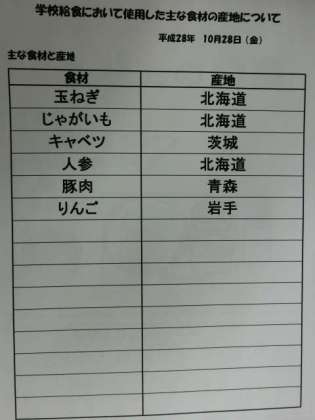 学校給食において使用した主な食材の産地について
平成28年 10月28日(金)
主な食材と産地
食材 産地
玉ねぎ 北海道
じゃがいも 北海道
キャベツ 茨城
人参 北海道
豚肉 青森
りんご 岩手